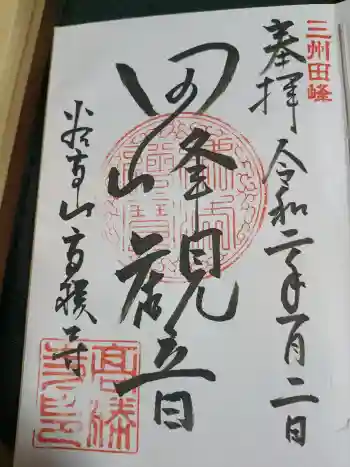 三州田峰
奉拝 令和二年一月二日
田峯観音
谷高山高勝寺
高勝
寺印